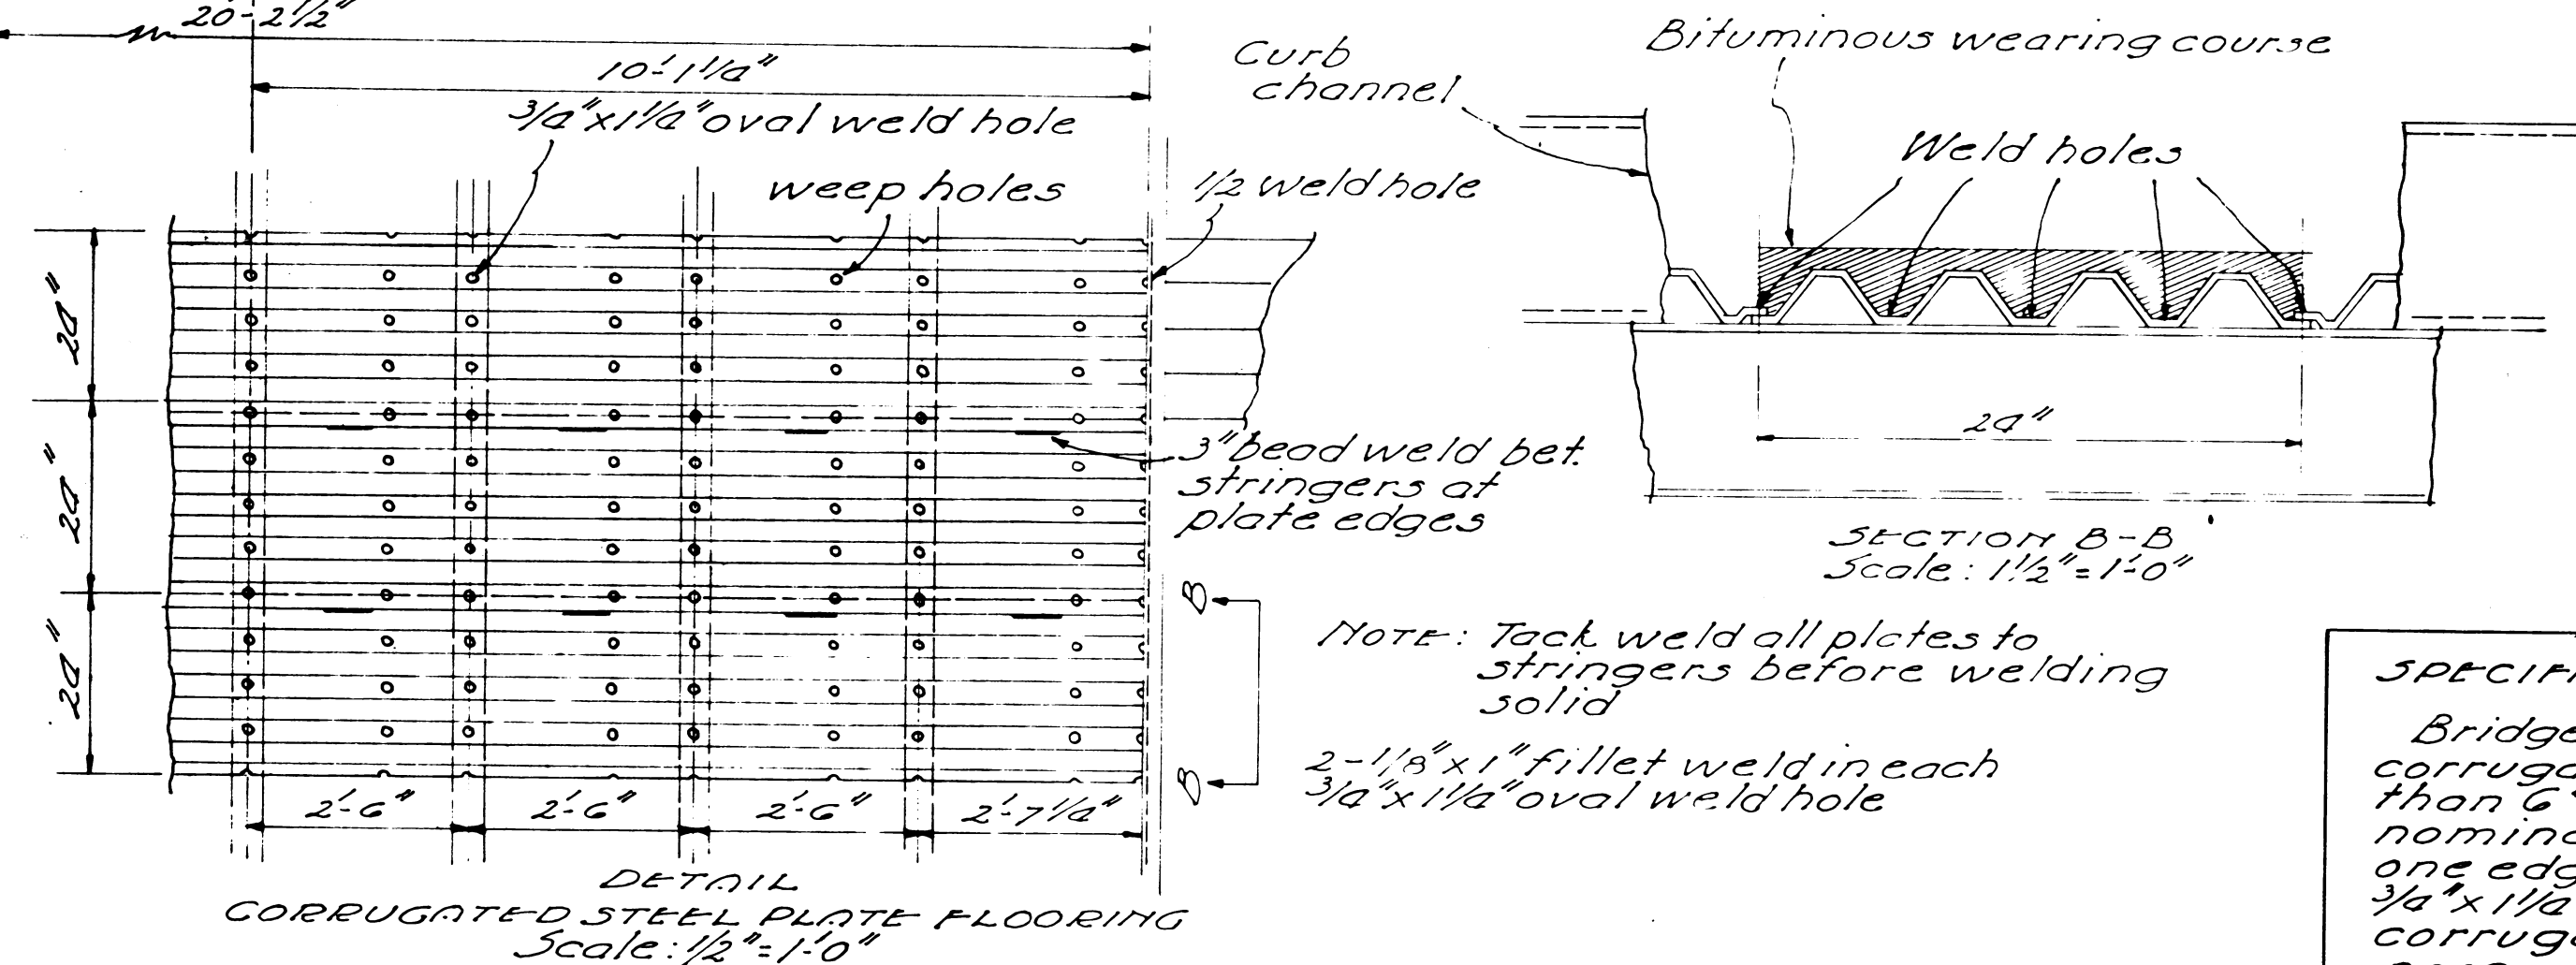 20'-2 1/2"
10'-1 1/4"
3/4" x 1 1/4" oval weld hole
weep holes
1/2 weld hole
24"
24"
24"
3" bead weld bet.
stringers at
plate edges
B
B
2'-6"
2'-6"
2'-6"
2'-7 1/4"
DETAIL
CORRUGATED STEEL PLATE FLOORING
Scale: 1/2" = 1'-0"
Curb
channel
Bituminous wearing course
Weld holes
24"
SECTION B-B
Scale: 1 1/2" = 1'-0"
NOTE: Tack weld all plates to
stringers before welding
solid
2-1/8" x 1" fillet weld in each
3/4" x 1 1/4" oval weld hole
SPECIF
Bridge
corruga
than 6
nomina
one edg
3/4" x 1 1/4
corruga